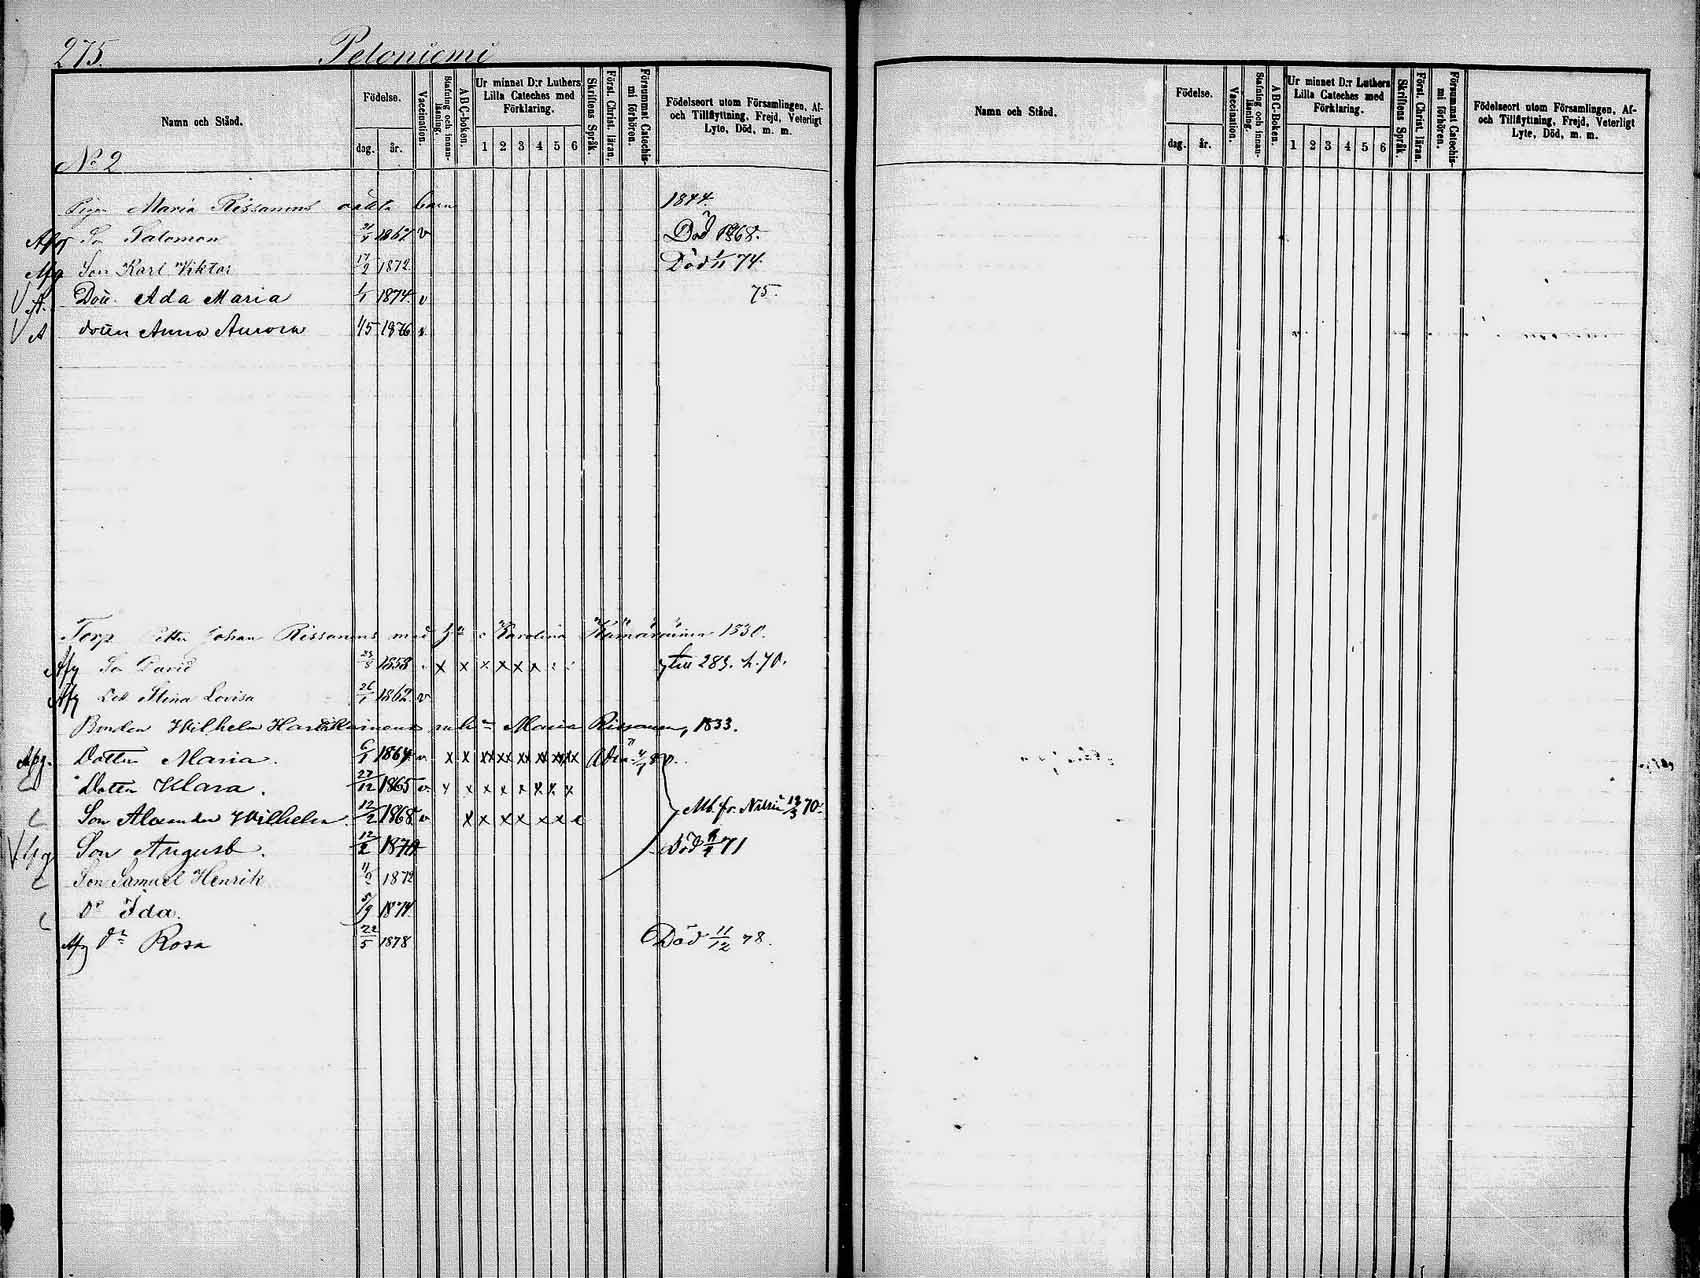 275. Peloniemi
Namn och Stånd.
Födelse.
dag. år.
Vaccination.
Stafning och innan-läsning.
ABC-boken.
Ur minnet D:r Luthers Lilla Cateches med Förklaring.
1 2 3 4 5 6
Skriftens Språk.
Först. Christ. läran.
Försummat Catechis-mi förhören.
Födelseort utom Församlingen, Af- och Tillflyttning, Frejd, Veterligt Lyte, Död, m. m.
No 2
Maria Rissanens oäkta barn 1844.
Afg Son Salomon 1867 v Död 1868.
Afg Son Karl Viktor 17/2 1872. Död 1/11 74.
A. Dott. Ada Maria 1/1 1874. v 75.
A dottern Anna Aurora 4/5 1876 v
Torp Petter Johan Rissanens med h. Karolina 1830.
Afg Son David 23/8 1858 x x x x x x till 283. h. 70.
Afg Dott Stina Lovisa 26/1 1862 v
Bonden Wilhelm m. h. Maria Rissanen, 1833.
Afg. Dottern Maria. 6/1 1864 v x x xx xx x xx xx xx
Dottern Klara. 27/12 1865 v x x x x x xx x x
Son Alexander Wilhelm 12/2 1868 v x x xx x x x Mb. fr. Nilsiä 12/3 70.
Afg Son August. 12/2 1870 Död 71
Son Samuel Henrik 1872
Dr Ida. 5/9 1874.
Afg dr Rosa 22/5 1878 Död 11/12 78.
Namn och Stånd.
Födelse.
dag. år.
Vaccination.
Stafning och innan-läsning.
ABC-Boken.
Ur minnet D:r Luthers Lilla Cateches med Förklaring.
1 2 3 4 5 6
Skriftens Språk.
Först. Christ. läran.
Försummat Catechis-mi förhören.
Födelseort utom Församlingen, Af- och Tillflyttning, Frejd, Veterligt Lyte, Död, m. m.